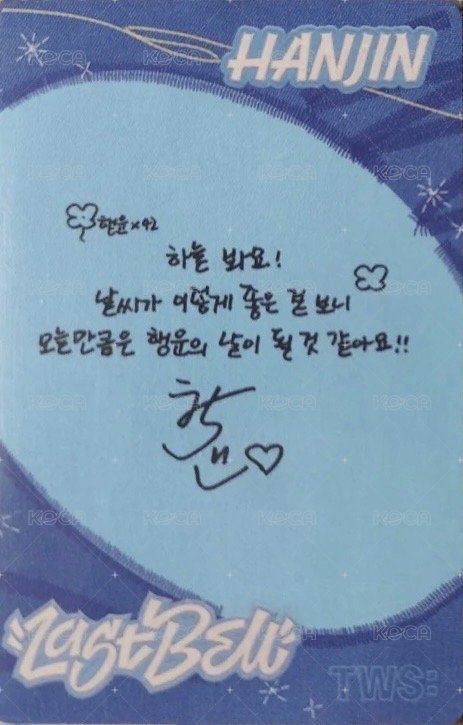 HANJIN
행운x42
하늘 봐요!
날씨가 이렇게 좋은 걸 보니
오늘만큼은 행운의 날이 될 것 같아요!!
Last Bell
TWS: